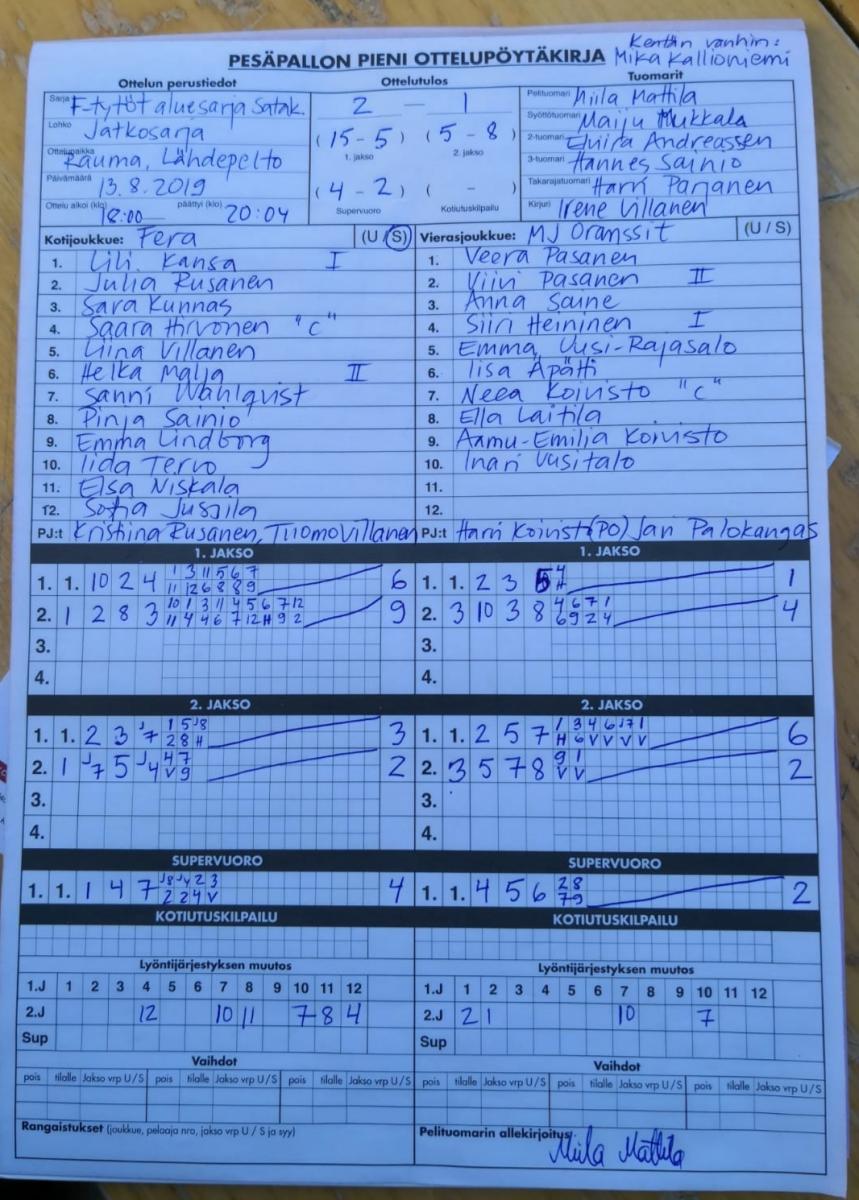 Kentän vanhin:
PESÄPALLON PIENI OTTELUPÖYTÄKIRJA Mika Kallioniemi
Ottelun perustiedot Ottelutulos Tuomarit
Sarja F-tytöt aluesarja Satak. 2 – 1 Pelituomari Miila Mattila
Lohko Jatkosarja (15-5) (5-8) Syöttötuomari Maiju Mukkala
1. jakso 2. jakso
Ottelupaikka Rauma, Lähdepelto 2-tuomari Elviira Andreassen
3-tuomari Hannes Sainio
Päivämäärä 13.8.2019 (4-2) ( - ) Takarajatuomari Harri Parjanen
Ottelu alkoi (klo) 18:00 päättyi (klo) 20:04 Supervuoro Kotiutuskilpailu Kirjuri Irene Villanen
Kotijoukkue: Fera (U / S) Vierasjoukkue: MJ Oranssit (U / S)
1. Lili Kansa I 1. Veera Pasanen
2. Julia Rusanen 2. Viivi Pasanen II
3. Sara Kunnas 3. Anna Saine
4. Saara Hirvonen "C" 4. Siiri Heininen I
5. Liina Villanen 5. Emma Uusi-Rajasalo
6. Helka Malja II 6. Iisa Äpätti
7. Sanni Wahlqvist 7. Neea Koivisto "C"
8. Pinja Sainio 8. Ella Laitila
9. Emma Lindborg 9. Aamu-Emilia Koivisto
10. Iida Tervo 10. Inari Uusitalo
11. Elsa Niskala 11.
12. Sofia Jussila 12.
PJ:t Kristiina Rusanen, Tuomo Villanen PJ:t Harri Koivisto (PO) Jari Palokangas
1. JAKSO 1. JAKSO
1. 1. 10 2 4 1 3 11 5 6 7 6 1. 1. 2 3 4 1
11 12 6 8 8 9 H
2. 1 2 8 3 10 1 3 11 4 5 6 7 12 9 2. 3 10 3 8 4 6 7 1 4
11 4 4 6 7 12 H 9 2 6 9 2 4
3. 3.
4. 4.
2. JAKSO 2. JAKSO
1. 1. 2 3 J7 1 5 J8 3 1. 1. 2 5 7 1 3 4 6 J7 1 6
2 8 H H 6 V V V V
2. 1 J7 5 J4 4 7 2 2. 3 5 7 8 9 1 2
V 9 V V
3. 3.
4. 4.
SUPERVUORO SUPERVUORO
1. 1. 1 4 7 J8 J4 2 3 4 1. 1. 4 5 6 2 8 2
2 2 4 V 7 9
KOTIUTUSKILPAILU KOTIUTUSKILPAILU
Lyöntijärjestyksen muutos Lyöntijärjestyksen muutos
1.J 1 2 3 4 5 6 7 8 9 10 11 12 1.J 1 2 3 4 5 6 7 8 9 10 11 12
2.J 12 10 11 7 8 4 2.J 2 1 10 7
Sup Sup
Vaihdot Vaihdot
pois tilalle Jakso vrp U / S pois tilalle Jakso vrp U / S pois tilalle Jakso vrp U / S pois tilalle Jakso vrp U / S pois tilalle Jakso vrp U / S pois tilalle Jakso vrp U / S
Rangaistukset (joukkue, pelaaja nro, jakso vrp U / S ja syy) Pelituomarin allekirjoitus
Miila Mattila